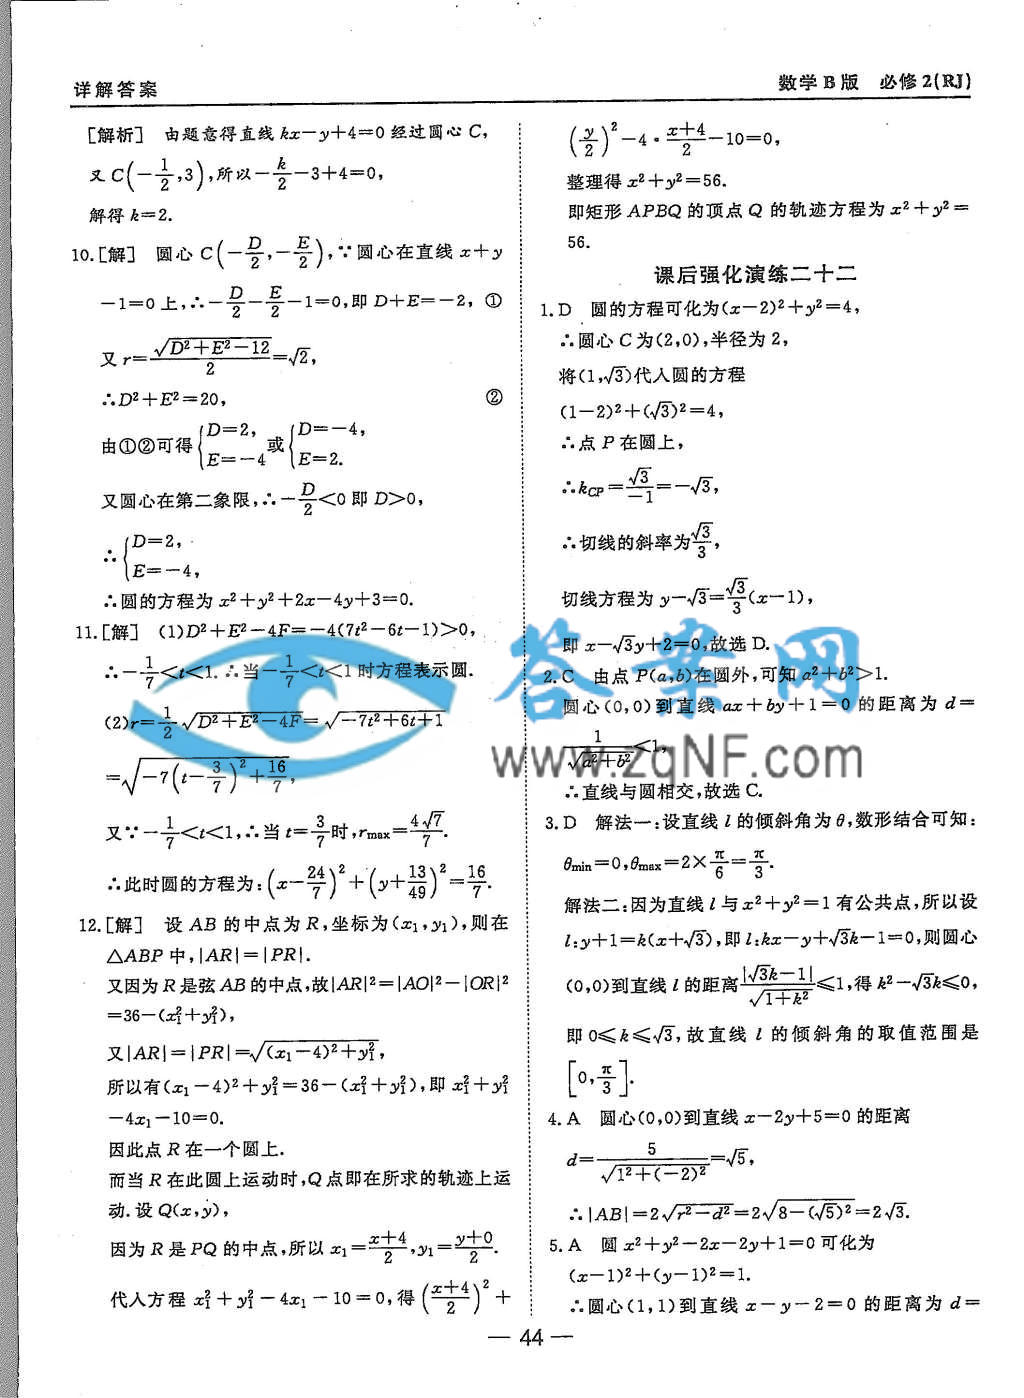 详解答案
数学B版 必修2(RJ)
[解析] 由题意得直线kx-y+4=0经过圆心C,
又C(-1/2,3),所以-k/2-3+4=0,
解得k=2.
10.[解] 圆心C(-D/2,-E/2),∵圆心在直线x+y
-1=0上,∴-D/2-E/2-1=0,即D+E=-2, ①
又r=√(D²+E²-12)/2=√2,
∴D²+E²=20, ②
由①②可得{D=2, E=-4 或{D=-4, E=2.
又圆心在第二象限,∴-D/2<0即D>0,
∴{D=2, E=-4,
∴圆的方程为x²+y²+2x-4y+3=0.
11.[解] (1)D²+E²-4F=-4(7t²-6t-1)>0,
∴-1/7<t<1.∴当-1/7<t<1时方程表示圆.
(2)r=1/2√(D²+E²-4F)=√(-7t²+6t+1)
=√(-7(t-3/7)²+16/7),
又∵-1/7<t<1,∴当t=3/7时,rmax=4√7/7.
∴此时圆的方程为:(x-24/7)²+(y+13/49)²=16/7.
12.[解] 设AB的中点为R,坐标为(x₁,y₁),则在
△ABP中,|AR|=|PR|.
又因为R是弦AB的中点,故|AR|²=|AO|²-|OR|²
=36-(x₁²+y₁²),
又|AR|=|PR|=√((x₁-4)²+y₁²),
所以有(x₁-4)²+y₁²=36-(x₁²+y₁²),即x₁²+y₁²
-4x₁-10=0.
因此点R在一个圆上.
而当R在此圆上运动时,Q点即在所求的轨迹上运
动.设Q(x,y),
因为R是PQ的中点,所以x₁=(x+4)/2,y₁=(y+0)/2.
代人方程x₁²+y₁²-4x₁-10=0,得((x+4)/2)²+
(y/2)²-4·(x+4)/2-10=0,
整理得x²+y²=56.
即矩形APBQ的顶点Q的轨迹方程为x²+y²=
56.
课后强化演练二十二
1.D 圆的方程可化为(x-2)²+y²=4,
∴圆心C为(2,0),半径为2,
将(1,√3)代人圆的方程
(1-2)²+(√3)²=4,
∴点P在圆上,
∴kCP=√3/-1=-√3,
∴切线的斜率为√3/3,
切线方程为y-√3=√3/3(x-1),
即x-√3y+2=0,故选D.
2.C 由点P(a,b)在圆外,可知a²+b²>1.
圆心(0,0)到直线ax+by+1=0的距离为d=
1/√(a²+b²)<1,
∴直线与圆相交,故选C.
3.D 解法一:设直线l的倾斜角为θ,数形结合可知:
θmin=0,θmax=2×π/6=π/3.
解法二:因为直线l与x²+y²=1有公共点,所以设
l:y+1=k(x+√3),即l:kx-y+√3k-1=0,则圆心
(0,0)到直线l的距离|√3k-1|/√(1+k²)≤1,得k²-√3k≤0,
即0≤k≤√3,故直线l的倾斜角的取值范围是
[0,π/3].
4.A 圆心(0,0)到直线x-2y+5=0的距离
d=5/√(1²+(-2)²)=√5,
∴|AB|=2√(r²-d²)=2√(8-(√5)²)=2√3.
5.A 圆x²+y²-2x-2y+1=0可化为
(x-1)²+(y-1)²=1.
∴圆心(1,1)到直线x-y-2=0的距离为d=
— 44 —
答案网
www.zqNF.com